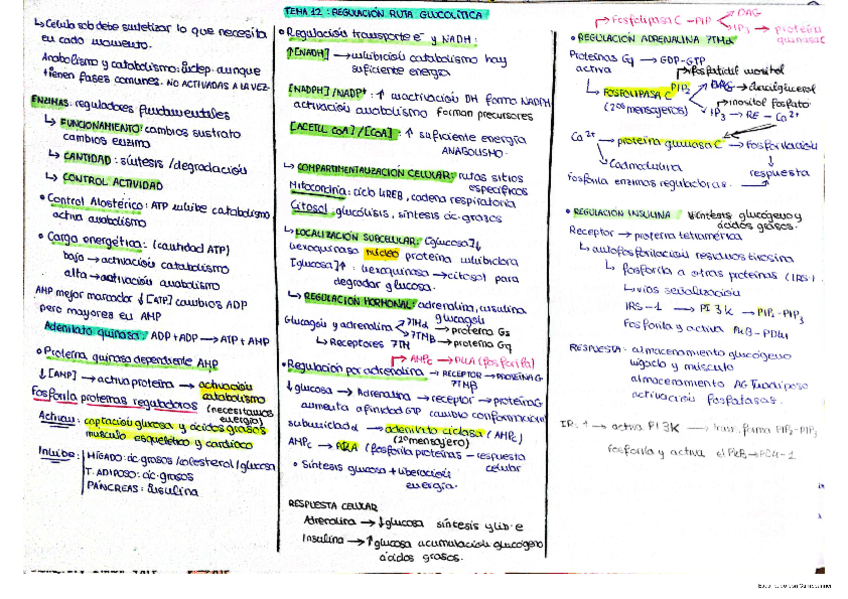 TEMA 12: REGULACIÓN RUTA GLUCOLÍTICA
↳ Célula sob debe sintetizar lo que necesita
en cada momento.
Anabolismo y catabolismo: indep. aunque
tienen fases comunes. NO ACTIVADAS A LA VEZ
ENZIMAS: reguladores fundamentales
↳ FUNCIONAMIENTO: cambios sustrato
cambios enzima
↳ CANTIDAD: síntesis / degradación
↳ CONTROL ACTIVIDAD
• Control Alostérico: ATP inhibe catabolismo
activa anabolismo
• Carga energética: (cantidad ATP)
baja → activación catabolismo
alta → activación anabolismo
AMP mejor marcador ↓[ATP] cambios ADP
pero mayores en AMP
Adenilato quinasa: ADP + ADP → ATP + AMP
• Proteína quinasa dependiente AMP
↓[AMP] → activa proteína → activación
catabolismo
Fosforila proteínas reguladoras (necesitamos
energía)
Activan: captación glucosa y ácidos grasos
músculo esquelético y cardíaco
Inhibe: HÍGADO: ác. grasos / colesterol / glucosa
T. ADIPOSO: ác. grasos
PÁNCREAS: insulina
• Regulación transporte e⁻ y NADH:
↑[NADH] → inhibición catabolismo hay
suficiente energía
[NADPH]/NADP⁺: ↑ inactivación DH forma NADPH
activación anabolismo forman precursores
[ACETIL CoA]/[CoA]: ↑ suficiente energía
ANABOLISMO.
↳ COMPARTIMENTALIZACIÓN CELULAR: rutas sitios
específicos
Mitocondria: ciclo KREB, cadena respiratoria
Citosol: glucólisis, síntesis ác. grasos
↳ LOCALIZACIÓN SUBCELULAR: [glucosa]↓
hexoquinasa núcleo proteína inhibidora
[glucosa]↑: hexoquinasa → citosol para
degradar glucosa.
↳ REGULACIÓN HORMONAL: adrenalina, insulina
glucagón
Glucagón y adrenalina 7TMα → proteína Gs
7TMβ → proteína Gq
↳ Receptores 7TM
AMPc → PKA (fosforila)
• Regulación por adrenalina → RECEPTOR → PROTEÍNA G
7TMβ
↓glucosa → Adrenalina → receptor → proteína G
aumenta afinidad GTP cambio conformacional
subunidad α → adenilato ciclasa (AMPc)
(2º mensajero)
AMPc → PKA (fosforila proteínas - respuesta
celular
• Síntesis glucosa + liberación
energía.
RESPUESTA CELULAR
Adrenalina → ↓glucosa síntesis y lib. e
Insulina → ↑glucosa acumulación glucógeno
ácidos grasos.
Fosfolipasa C - PIP DAG
IP3 → proteína
quinasa C
• REGULACIÓN ADRENALINA 7TMα
Proteínas Gq → GDP-GTP
activa
fosfatidil inositol
↳ FOSFOLIPASA C PIP2 DAG → diacilglicerol
(2os mensajeros) inositol fosfato
IP3 → RE - Ca²⁺
Ca²⁺ → proteína quinasa C → Fosforilación
↳ Calmodulina respuesta
Fosforila enzimas reguladoras.
• REGULACIÓN INSULINA síntesis glucógeno y
ácidos grasos.
Receptor → proteína tetramérica
↳ autofosforilación residuos tirosina
↳ fosforila a otras proteínas (IRS-1
↳ vías señalización
IRS-1 → PI3K → PIP2-PIP3
Fosforila y activa PKB-PDK1
RESPUESTA - almacenamiento glucógeno
hígado y músculo
almacenamiento AG T.adiposo
activación fosfatasas.
→ activa PI3K → transforma PIP2-PIP3
fosforila y activa el PKB → PDK-1